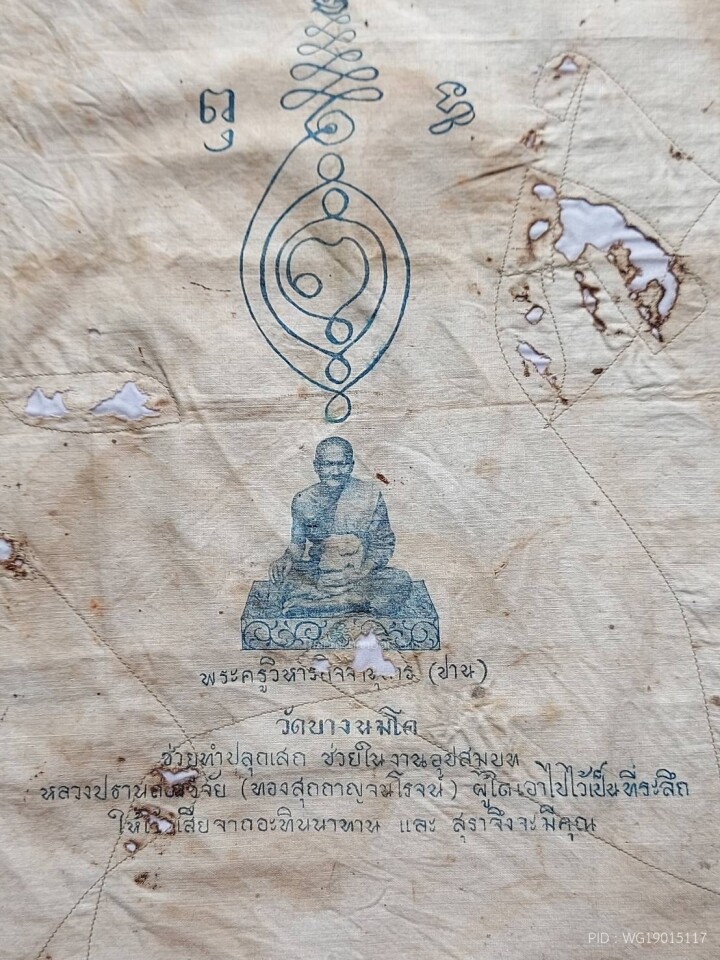 พระครูวิหารกิจจานุการ (ปาน)
วัดบางนมโค
ช่วยทำปลุกเสก ช่วยในงานอุปสมบท
(ทองสุกกาญจนโรจน์) ผู้ใดเอาไปไว้เป็นที่ระลึก
เสียจากอะทินนาทาน และ สุราจึงจะมีคุณ
PID : WG19015117